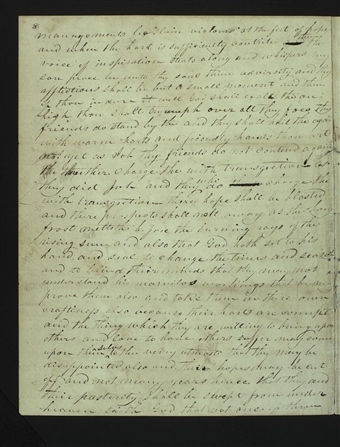 managements lie slain victoms at the feet of hope
and when the hart is sufficiently contrite the
voice of inspiration steals along and whispers my
son peace be unto thy soul thine adversity and thy
afflictions shall be but a small moment and then
if thou indure it well God shall exalt the on
high thou shalt tryumph over all thy foes thy
friends do stand by the and they shall hail the again
with warm harts and friendly hands thou art
not yet as Job thy friends do not contend again
the neither charge the with transgretion as
they did Job and they who do charge the
with transgretion there hope shall be blasted
and there prospects shall melt away as the hory
frost melteth before the burning rays of the
rising sun and also that God hath set to his
hand and seal to change the times and seasons
and to blind their minds that they may not
understand his marvilos workings that he may
prove them also and take them in their own
craftiness also because their harts are corrupt
and the thing which they are willing to bring upon
others and love to have others suffer may come
upon them selvs to the very utmost that they may be
disappointed also and their hopes may be cut
off and not many years hence that they and
their pasterity shall be swept from under
heaven saith God that not one of them